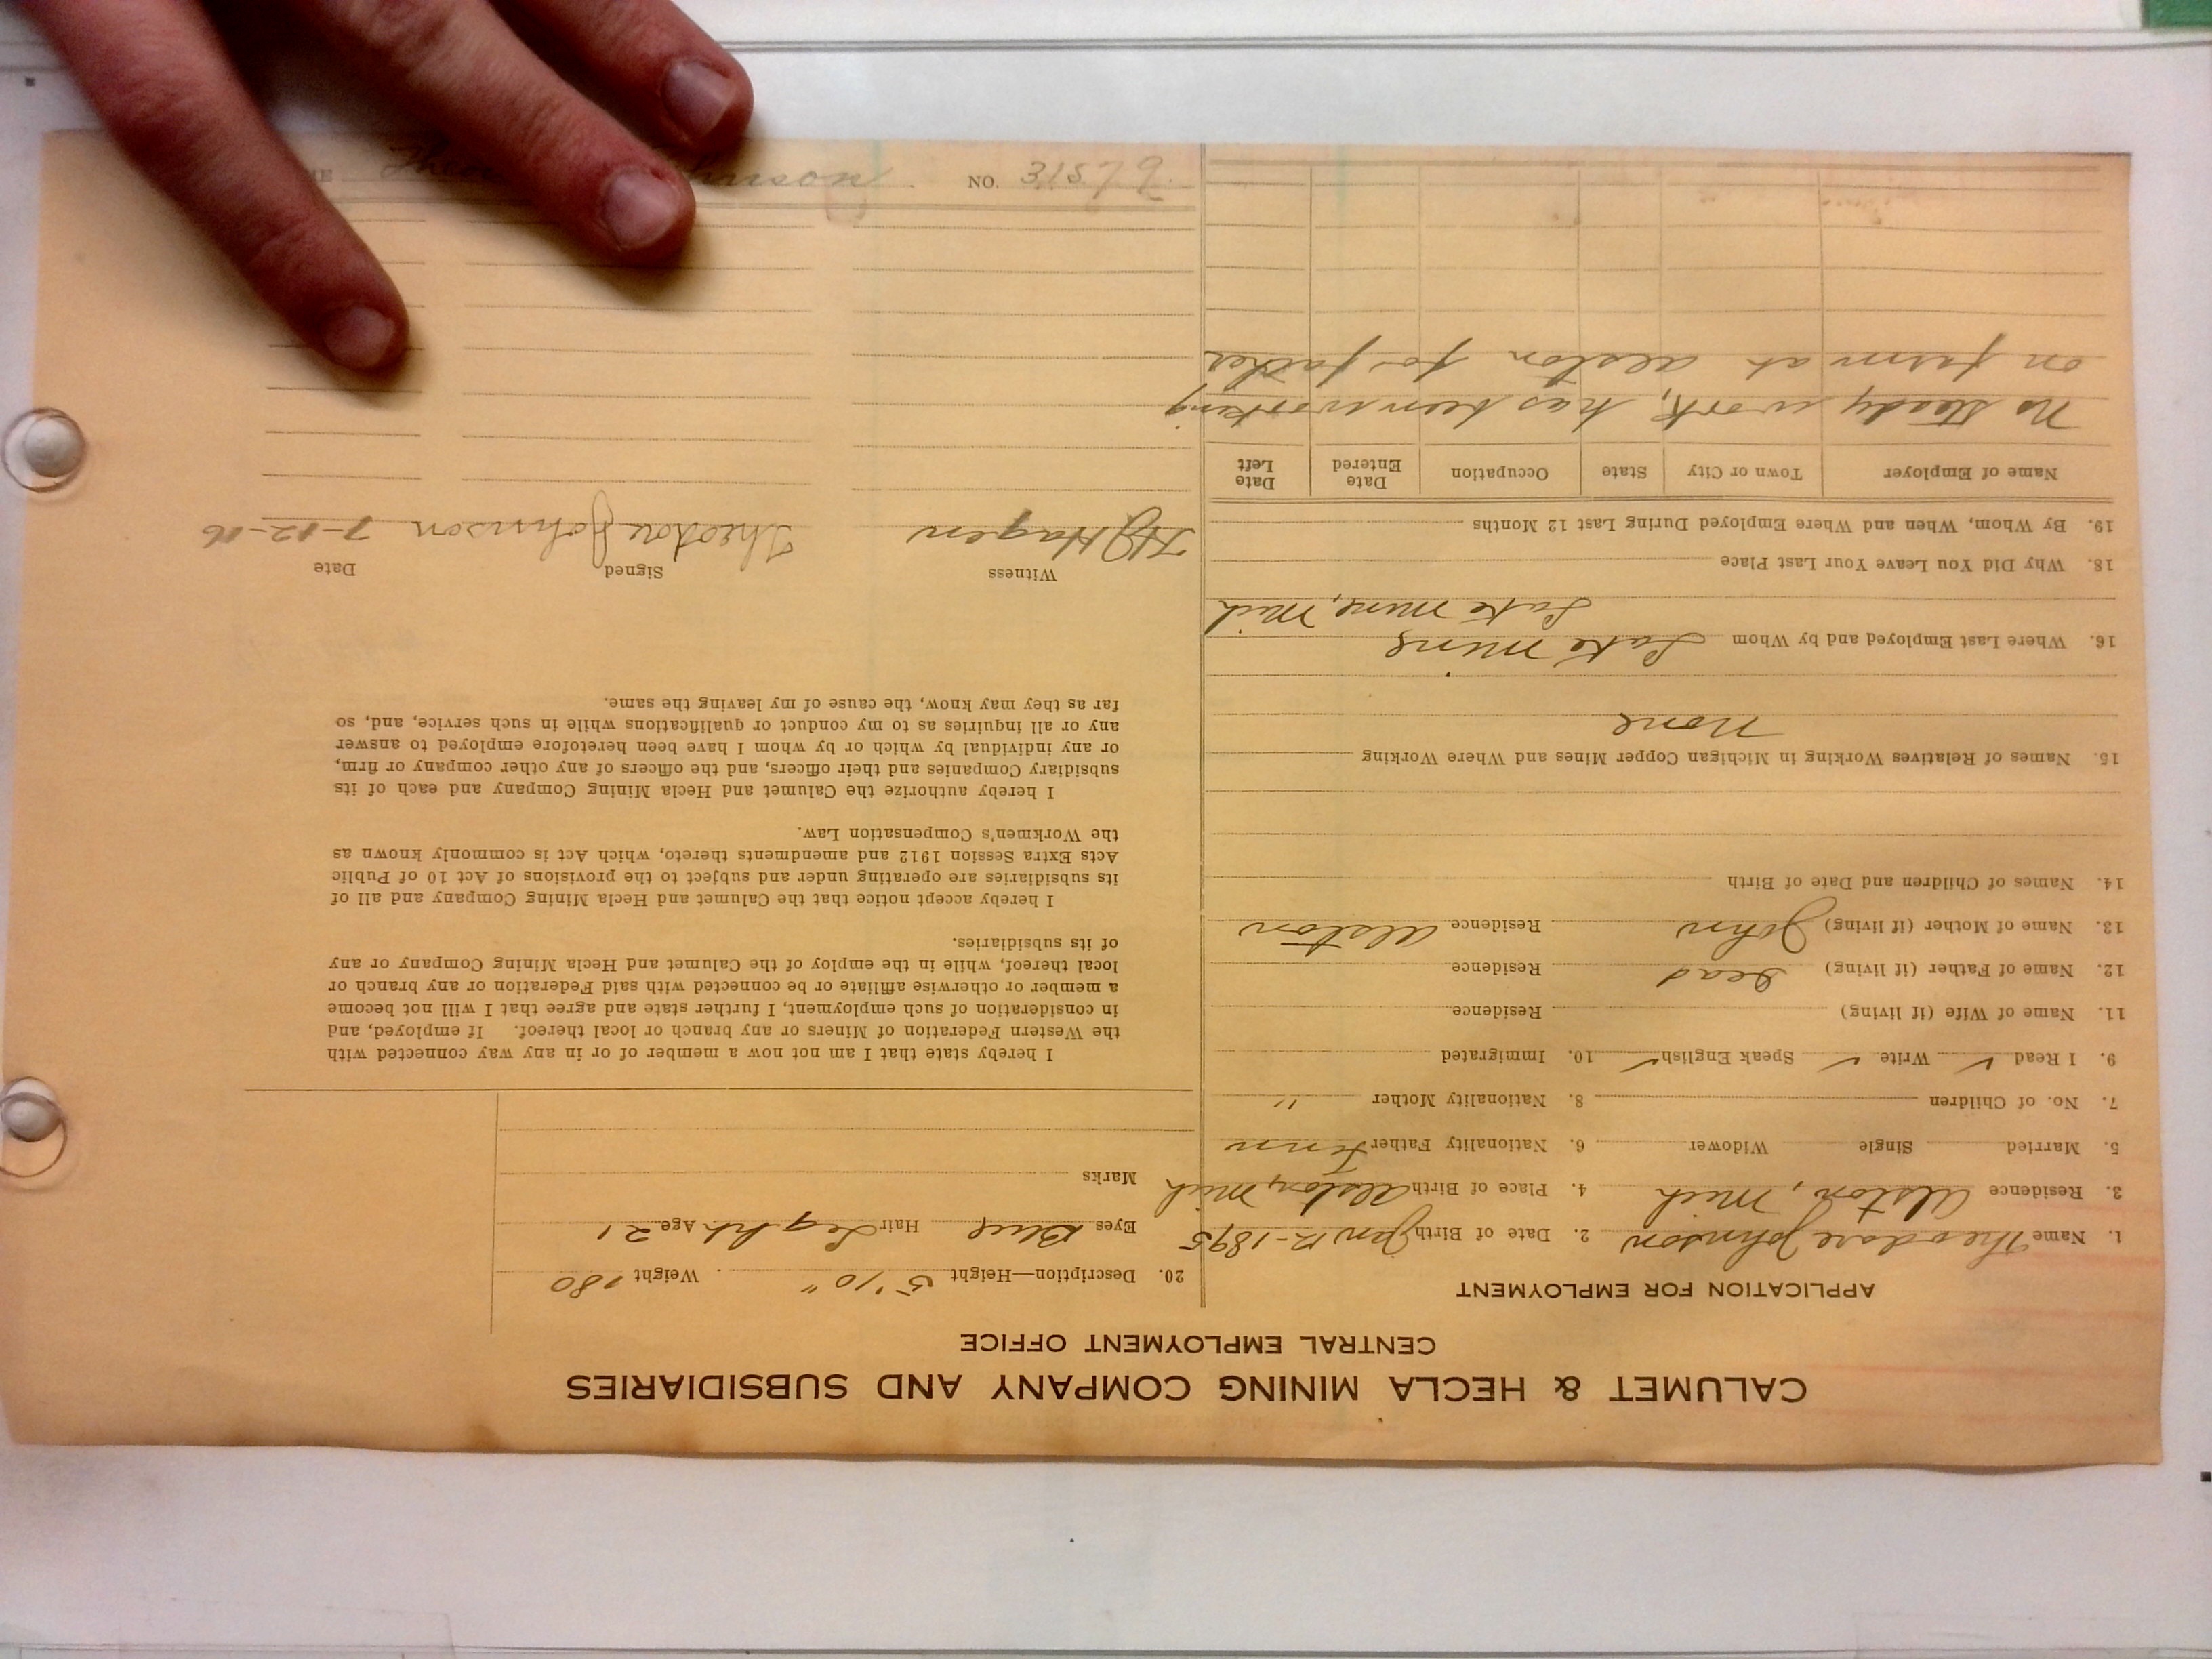 CALUMET & HECLA MINING COMPANY AND SUBSIDIARIES
CENTRAL EMPLOYMENT OFFICE
APPLICATION FOR EMPLOYMENT
1. Name Theodore Johnson 2. Date of Birth Jan 12-1895
3. Residence Alston, Mich 4. Place of Birth Alston, Mich
5. Married Single Widower 6. Nationality Father Finn
7. No. of Children 8. Nationality Mother "
9. I Read ✓ Write ✓ Speak English ✓ 10. Immigrated
11. Name of Wife (if living) Residence
12. Name of Father (if living) Dead Residence
13. Name of Mother (if living) John Residence Alston
14. Names of Children and Date of Birth
15. Names of Relatives Working in Michigan Copper Mines and Where Working
None
16. Where Last Employed and by Whom Lake Mine
Lake Mine, Mich
18. Why Did You Leave Your Last Place
19. By Whom, When and Where Employed During Last 12 Months
Name of Employer Town or City State Occupation Date Entered Date Left
No steady work, has been working
on farm at Alston for father
20. Description—Height 5' 10" Weight 180
Eyes Blue Hair Light Age 21
Marks
I hereby state that I am not now a member of or in any way connected with
the Western Federation of Miners or any branch or local thereof. If employed, and
in consideration of such employment, I further state and agree that I will not become
a member or otherwise affiliate or be connected with said Federation or any branch or
local thereof, while in the employ of the Calumet and Hecla Mining Company or any
of its subsidiaries.
I hereby accept notice that the Calumet and Hecla Mining Company and all of
its subsidiaries are operating under and subject to the provisions of Act 10 of Public
Acts Extra Session 1912 and amendments thereto, which Act is commonly known as
the Workmen's Compensation Law.
I hereby authorize the Calumet and Hecla Mining Company and each of its
subsidiary Companies and their officers, and the officers of any other company or firm,
or any individual by which or by whom I have been heretofore employed to answer
any or all inquiries as to my conduct or qualifications while in such service, and, so
far as they may know, the cause of my leaving the same.
Witness Signed Date
Hagen Theodore Johnson 7-12-16
NO. 31579